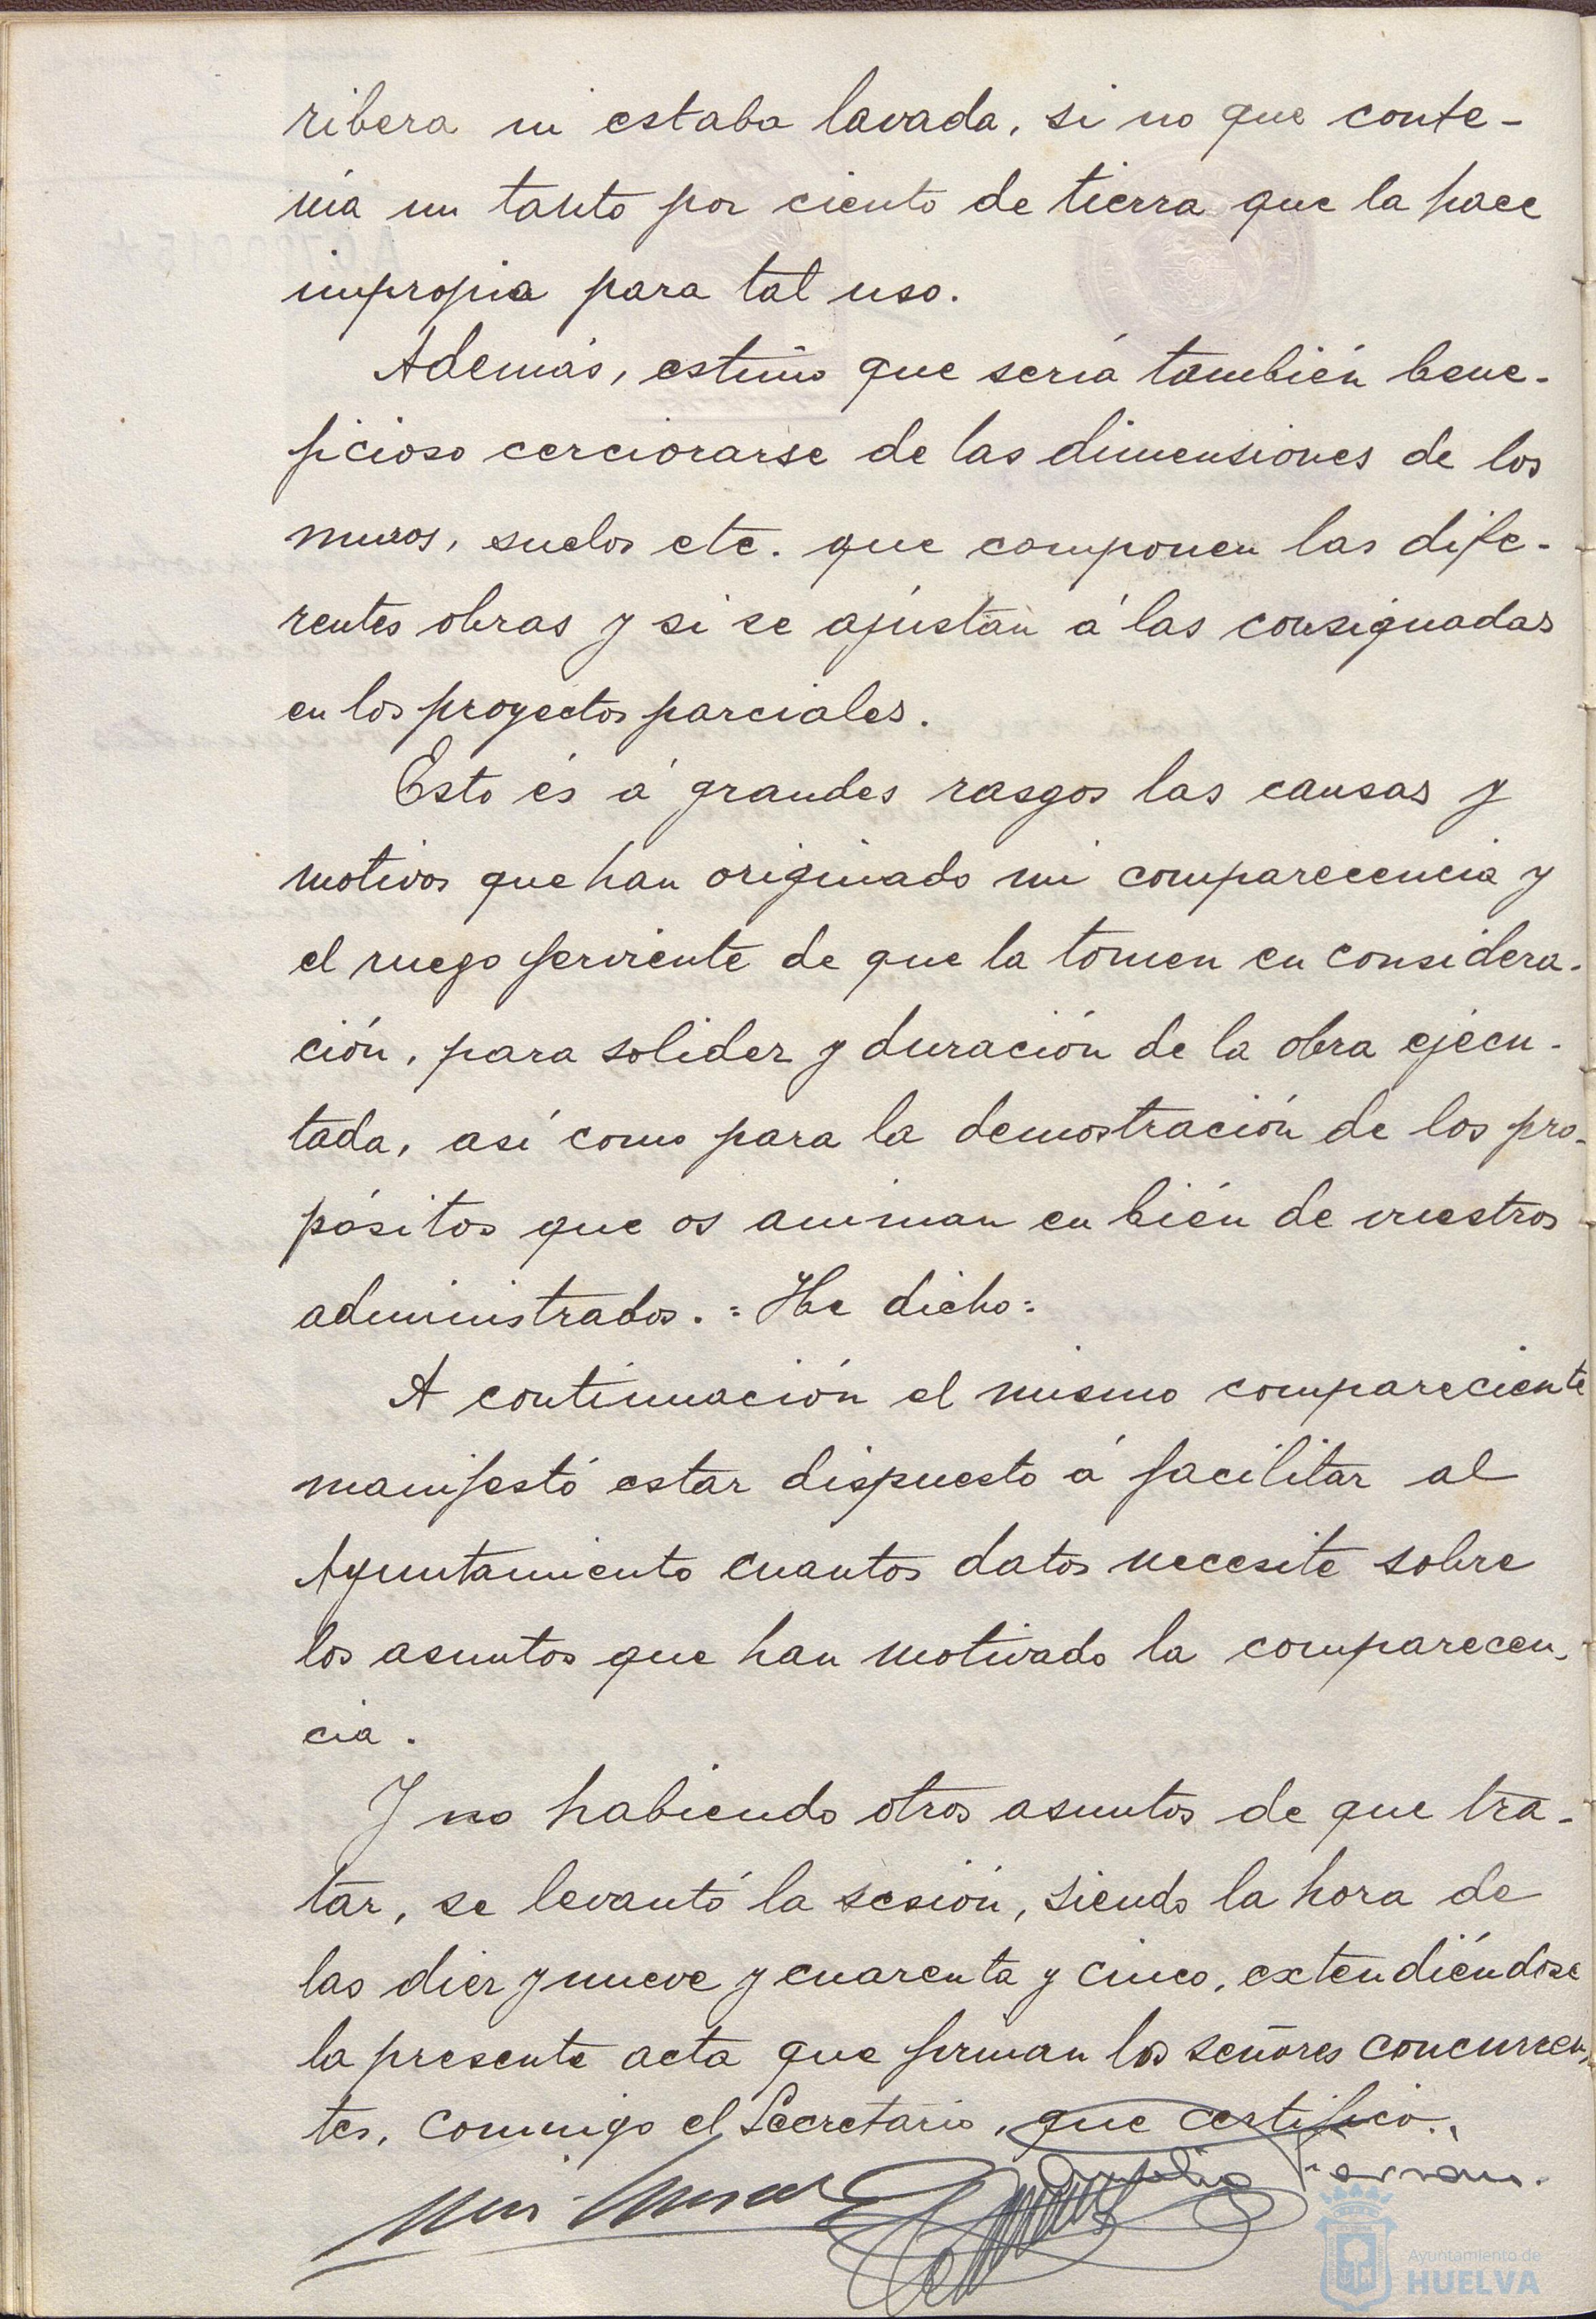 ribera ni estaba lavada, si no que conte-
nía un tanto por ciento de tierra que la hace
impropia para tal uso.
Además, estimo que sería también bene-
ficioso cerciorarse de las dimensiones de los
muros, suelos etc. que componen las dife-
rentes obras y si se ajústan á las consignadas
en los proyectos parciales.
Esto és á grandes rasgos las causas y
motivos que han originado mi comparecencia y
el ruego ferviente de que la tomen en considera-
ción, para solidez y duración de la obra ejecu-
tada, así como para la demostración de los pro-
pósitos que os animan en bién de vuestros
administrados. = He dicho =
A continuación el mismo compareciente
manifestó estar dispuesto á facilitar al
Ayuntamiento cuantos datos necesite sobre
los asuntos que han motivado la comparecen-
cia.
Y no habiendo otros asuntos de que tra-
tar, se levantó la sesión, siendo la hora de
las diez y nueve y cuarenta y cinco, extendiéndose
la presente acta que firman los señores concurren-
tes, conmigo el Secretario, que certifico.
Ayuntamiento de
HUELVA